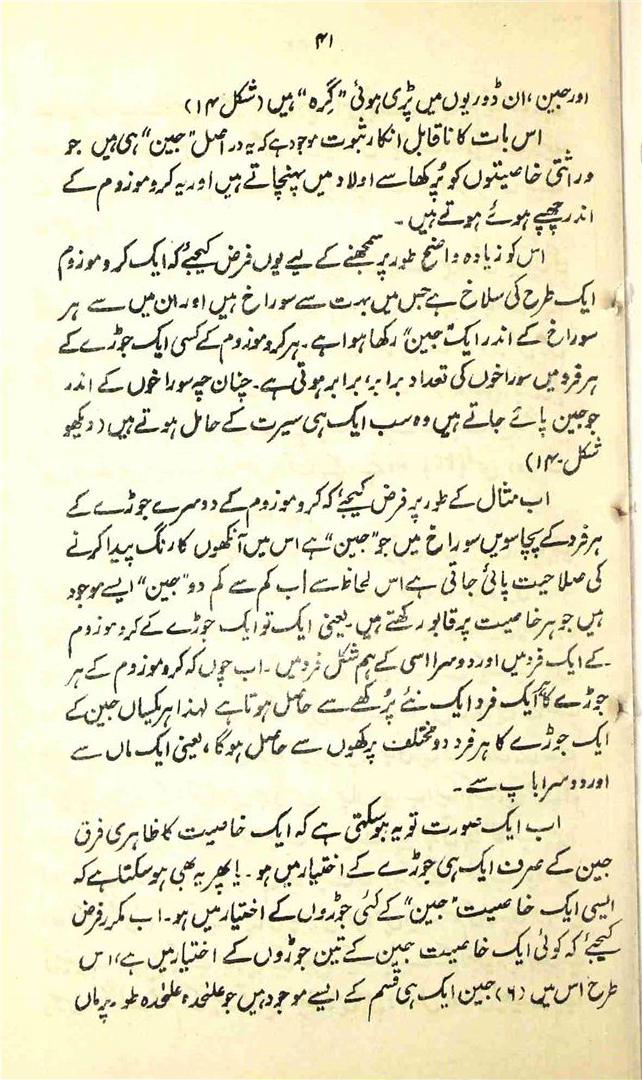 ۴۱
اور جین ،ان ڈوریوں میں پڑی ہوئی ”گرہ“ ہیں (شکل ۱۴)
اس بات کا ناقابل انکار ثبوت موجود ہے کہ یہ در اصل ”جین“ ہی ہیں جو
وراثتی خاصیتوں کو پُرکھا سے اولاد میں پہنچاتے ہیں اور یہ کروموزوم کے
اندر چھپے ہوئے ہوتے ہیں ۔
اس کو زیادہ واضح طور پر سمجھنے کے لیے یوں فرض کیجئے کہ ایک کروموزوم
ایک طرح کی سلاخ ہے جس میں بہت سے سوراخ ہیں اور ان میں سے ہر
سوراخ کے اندر ایک ”جین“ رکھا ہوا ہے ۔ ہر کروموزوم کے کسی ایک جوڑے کے
ہر فرد میں سوراخوں کی تعداد برابر، برابر ہوتی ہے ۔ چنان چہ سوراخوں کے اندر
جو جین پائے جاتے ہیں وہ سب ایک ہی سیرت کے حامل ہوتے ہیں (دیکھو
شکل ۔۱۴)
اب مثال کے طور پر فرض کیجئے کہ کروموزوم کے دوسرے جوڑے کے
ہر فرد کے پچاسویں سوراخ میں جو ”جین“ ہے اس میں آنکھوں کا رنگ پیدا کرنے
کی صلاحیت پائی جاتی ہے اس لحاظ سے اب کم سے کم دو ”جین“ ایسے موجود
ہیں جو ہر خاصیت پر قابو رکھتے ہیں ۔ یعنی ایک تو ایک جوڑے کے کروموزوم
کے ایک فرد میں اور دوسرا اسی کے ہم شکل فرد میں ۔ اب چوں کہ کروموزوم کے ہر
جوڑے کا ایک فرد ایک نئے پُرکھے سے حاصل ہوتا ہے لہٰذا ہر یکساں جین کے
ایک جوڑے کا ہر فرد دو مختلف پرکھوں سے حاصل ہوگا ، یعنی ایک ماں سے
اور دوسرا باپ سے ۔
اب ایک صورت تو یہ ہو سکتی ہے کہ ایک خاصیت کا ظاہری فرق
جین کے صرف ایک ہی جوڑے کے اختیار میں ہو ۔ یا پھر یہ بھی ہو سکتا ہے کہ
ایسی ایک خاصیت ”جین“ کے کئی جوڑوں کے اختیار میں ہو ۔ اب مکرر فرض
کیجئے کہ کوئی ایک خاصیت جین کے تین جوڑوں کے اختیار میں ہے، اس
طرح اس میں (۶) جین ایک ہی قسم کے ایسے موجود ہیں جو علٰحدہ علٰحدہ طور پر ماں